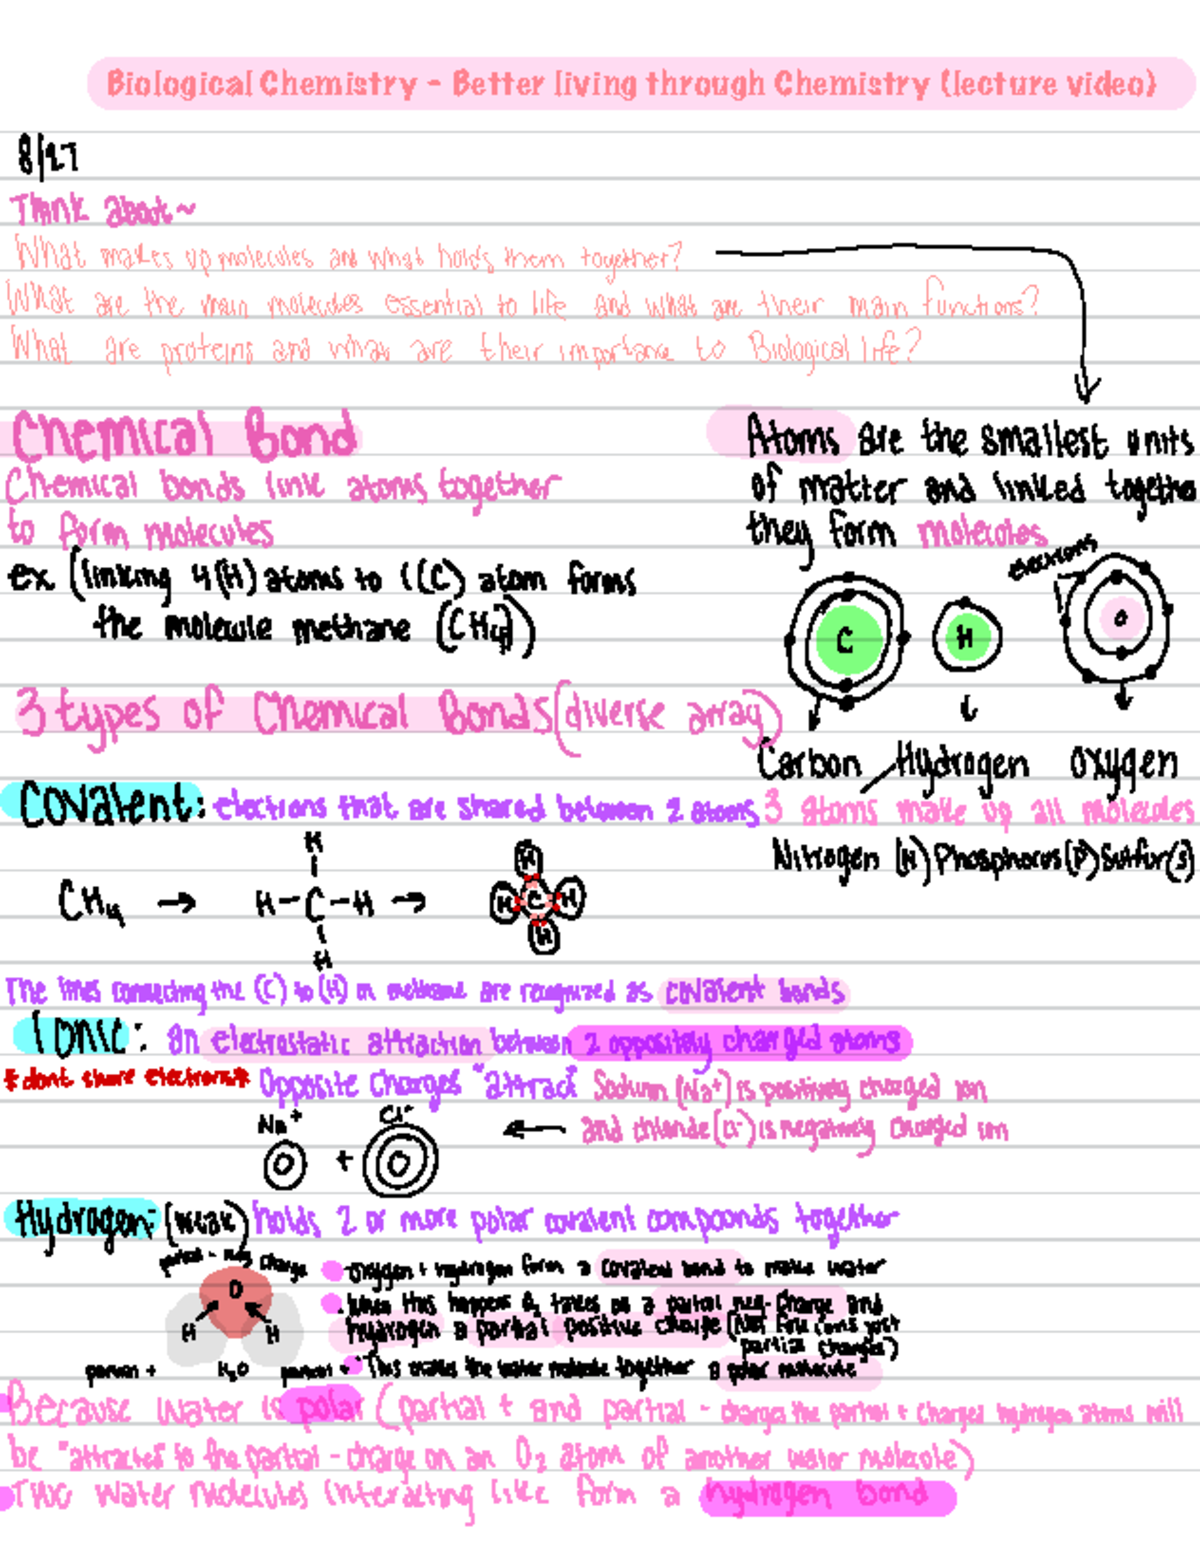 Biological Chemistry - Better living through Chemistry (lecture video)
8/27
Think about~
What makes up molecules and what holds them together?
What are the main molecules essential to life and what are their main functions?
What are proteins and what are their importance to Biological life?
Chemical Bond
Chemical bonds link atoms together
to form molecules
ex (linking 4(H) atoms to 1(C) atom forms
the molecule methane (CH4))
Atoms are the smallest units
of matter and linked together
they form molecules
electrons
C
H
O
Carbon / Hydrogen oxygen
3 atoms make up all molecules
Nitrogen (N) Phosphorus (P) Sulfur (S)
3 types of Chemical Bonds (diverse array)
Covalent: electrons that are shared between 2 atoms
H
CH4 → H-C-H →
H
H
H C H
H
The lines connecting the (C) to (H) in methane are recognized as covalent bonds
Ionic: an electrostatic attraction between 2 oppositely charged atoms
*dont share electrons* Opposite Charges "attract" Sodium (Na+) is positively charged ion
and chloride (Cl-) is negatively charged ion
Na+ Cl-
+
Hydrogen: (weak) holds 2 or more polar covalent compounds together
partial - neg charge
O
H H
partial + H2O partial +
oxygen + hydrogen form a covalent bond to make water
When this happens O2 takes on a partial neg-charge and
hydrogen a partial positive charge (Not full ions just
partial charges)
This makes the water molecule together a polar molecule
Because water is polar (partial + and partial - charges the partial + charged hydrogen atoms will
be "attracted" to the partial - charge on an O2 atom of another water molecule)
Two water molecules interacting like form a hydrogen bond